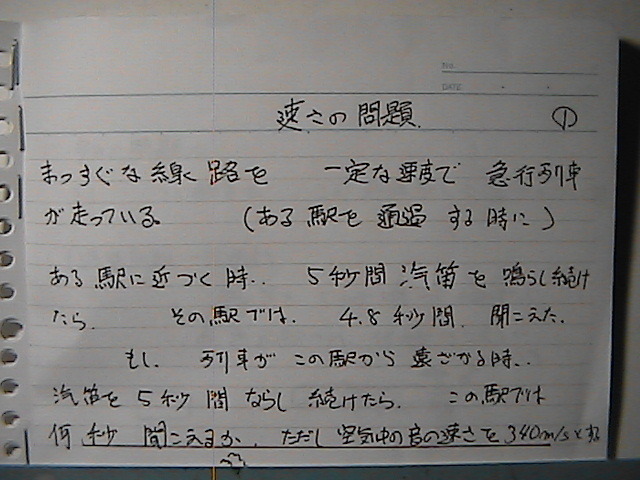 No.
DATE
速さの問題. ①
まっすぐな線路を 一定な速度で 急行列車
が走っている。 (ある駅を通過する時に)
ある駅に近づく時.. 5秒間汽笛を鳴らし続け
たら. その駅では. 4.8秒間. 聞こえた.
もし. 列車がこの駅から遠ざかる時..
汽笛を5秒間ならし続けたら. この駅では
何秒聞こえるか. ただし空気中の音の速さを340m/sとする